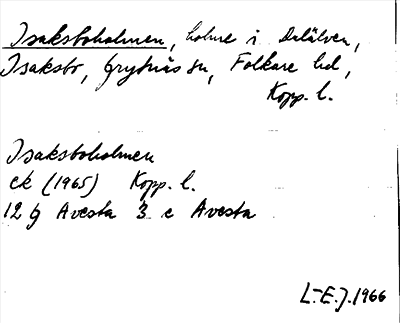 Isaksboholmen, holme i Dalälven,
Isaksbo, Grytnäs sn, Folkare hd,
Kopp. l.
Isaksboholmen
ek (1965) Kopp. l.
12 g Avesta 3 c Avesta
L.-E.J. 1966